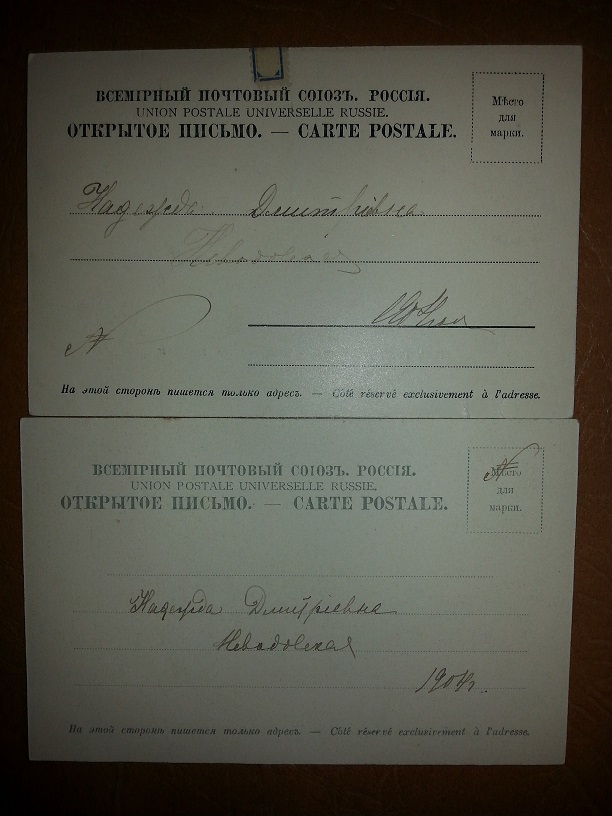 ВСЕМІРНЫЙ ПОЧТОВЫЙ СОЮЗЪ. РОССІЯ.
UNION POSTALE UNIVERSELLE RUSSIE.
ОТКРЫТОЕ ПИСЬМО. — CARTE POSTALE.
Мѣсто
для
марки.
Надежда Дмитріевна
На этой сторонѣ пишется только адресъ. — Côté réservé exclusivement à l'adresse.
ВСЕМІРНЫЙ ПОЧТОВЫЙ СОЮЗЪ. РОССІЯ.
UNION POSTALE UNIVERSELLE RUSSIE.
ОТКРЫТОЕ ПИСЬМО. — CARTE POSTALE.
Мѣсто
для
марки.
Надежда Дмитріевна
Неводовская
1904г.
На этой сторонѣ пишется только адресъ. — Côté réservé exclusivement à l'adresse.